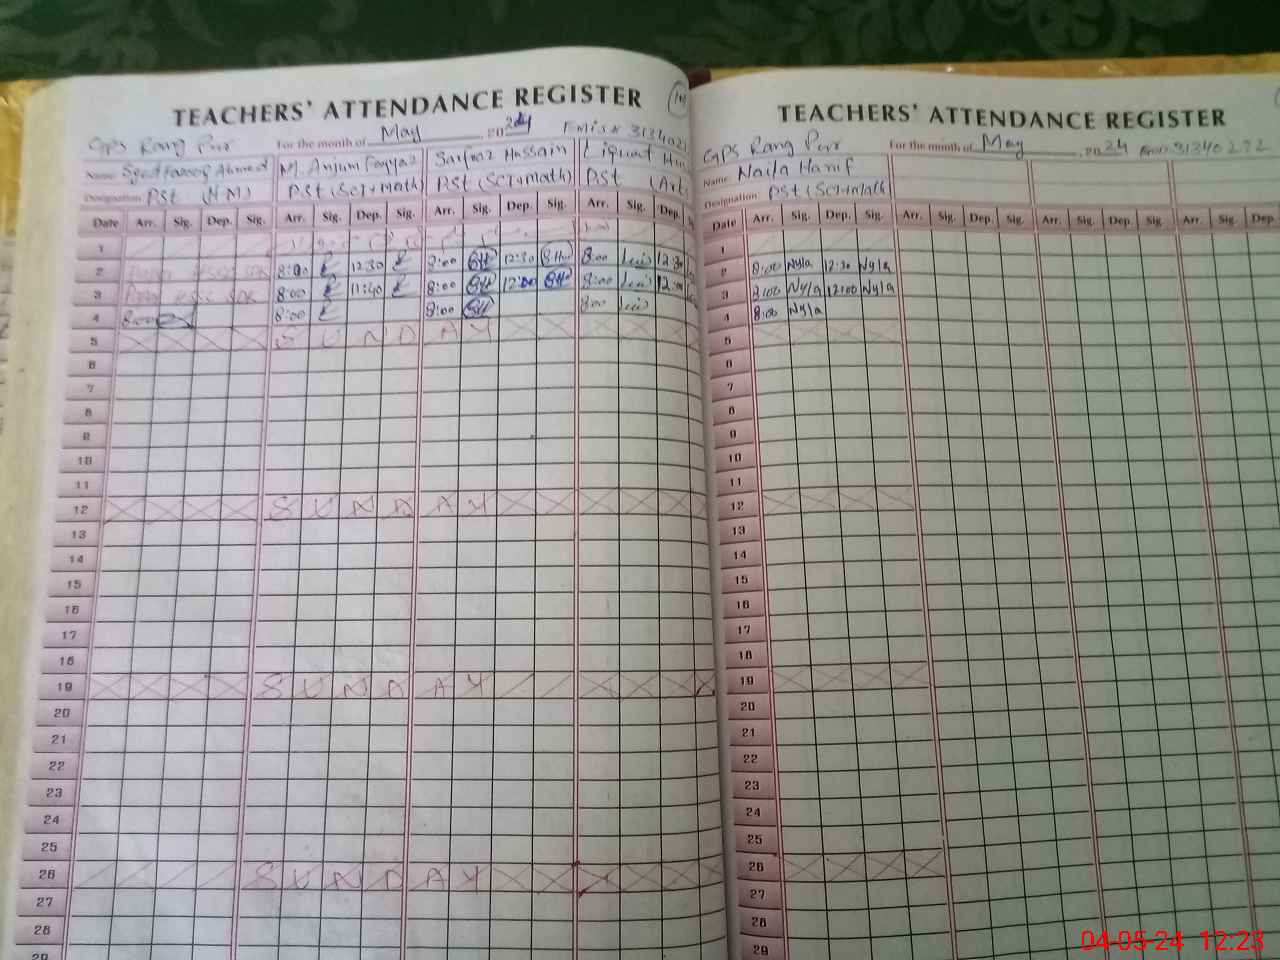 TEACHERS' ATTENDANCE REGISTER
GPS Rang Pur For the month of May , 2024 Emis # 3134021
Name Syed Farooq Ahmed M. Anjum Fayyaz Sarfraz Hussain Liquat Hu
Designation: PSt (HM) PSt (SCI+Math) PSt (SCI+Math) PSt (Art
Date Arr. Sig. Dep. Sig. Arr. Sig. Dep. Sig. Arr. Sig. Dep. Sig. Arr. Sig. Dep. S
1
2 8:00 12:30 8:00 12:30 8:00 12:30
3 8:00 11:40 8:00 12:00 8:00 12:00
4 8:00 8:00 8:00 8:00
5 SUNDAY
6
7
8
9
10
11
12 SUNDAY
13
14
15
16
17
18
19 SUNDAY
20
21
22
23
24
25
26 SUNDAY
27
28
29
TEACHERS' ATTENDANCE REGISTER
GPS Rang Pur For the month of May , 2024 Emis 31340222
Name Naila Hanif
Designation: PSt (SCI+Math
Date Arr. Sig. Dep. Sig. Arr. Sig. Dep. Sig. Arr. Sig. Dep. Sig. Arr. Sig. Dep.
1
2 8:00 Nyla 12:30 Nyla
3 8:00 Nyla 12:00 Nyla
4 8:00 Nyla
5
6
7
8
9
10
11
12
13
14
15
16
17
18
19
20
21
22
23
24
25
26
27
28
29
04-05-24 12:23